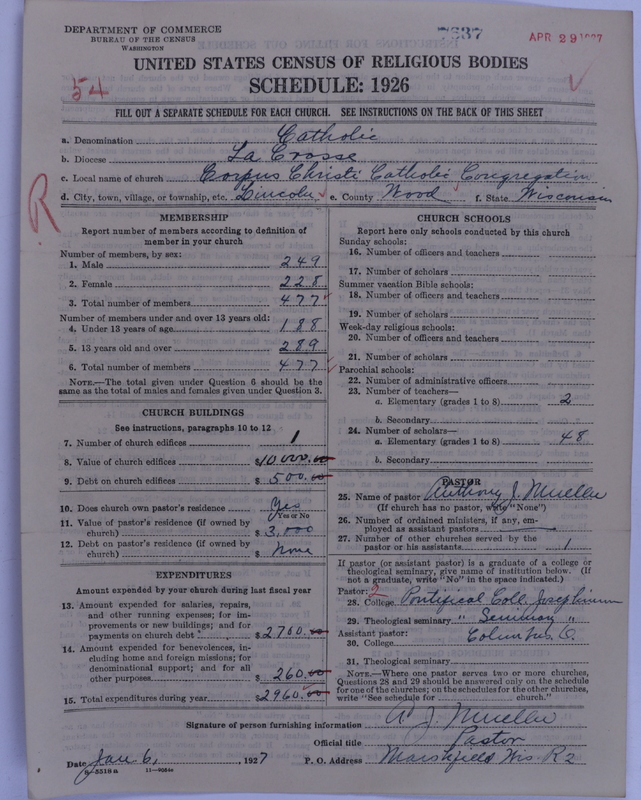 DEPARTMENT OF COMMERCE
BUREAU OF THE CENSUS
WASHINGTON
7637
APR 29 1927
UNITED STATES CENSUS OF RELIGIOUS BODIES
SCHEDULE: 1926
54
FILL OUT A SEPARATE SCHEDULE FOR EACH CHURCH. SEE INSTRUCTIONS ON THE BACK OF THIS SHEET
a. Denomination Catholic
b. Diocese La Crosse
c. Local name of church Corpus Christi Catholic Congregation
d. City, town, village, or township, etc. Lincoln e. County Wood f. State Wisconsin
R
MEMBERSHIP
Report number of members according to definition of
member in your church
Number of members, by sex:
1. Male 249
2. Female 228
3. Total number of members 477
Number of members under and over 13 years old:
4. Under 13 years of age 188
5. 13 years old and over 289
6. Total number of members 477
NOTE.—The total given under Question 6 should be the
same as the total of males and females given under Question 3.
CHURCH BUILDINGS
See instructions, paragraphs 10 to 12
7. Number of church edifices 1
8. Value of church edifices $10000.00
9. Debt on church edifices $500.00
10. Does church own pastor's residence Yes
Yes or No
11. Value of pastor's residence (if owned by
church) $3,000
12. Debt on pastor's residence (if owned by
church) $None
EXPENDITURES
Amount expended by your church during last fiscal year
13. Amount expended for salaries, repairs,
and other running expenses; for im-
provements or new buildings; and for
payments on church debt $2700.00
14. Amount expended for benevolences, in-
cluding home and foreign missions; for
denominational support; and for all
other purposes $260.00
15. Total expenditures during year $2960.00
CHURCH SCHOOLS
Report here only schools conducted by this church
Sunday schools:
16. Number of officers and teachers
17. Number of scholars
Summer vacation Bible schools:
18. Number of officers and teachers
19. Number of scholars
Week-day religious schools:
20. Number of officers and teachers
21. Number of scholars
Parochial schools:
22. Number of administrative officers
23. Number of teachers—
a. Elementary (grades 1 to 8) 2
b. Secondary
24. Number of scholars—
a. Elementary (grades 1 to 8) 48
b. Secondary
PASTOR
25. Name of pastor Anthony J. Mueller
(If church has no pastor, write "None")
26. Number of ordained ministers, if any, em-
ployed as assistant pastors
27. Number of other churches served by the
pastor or his assistants 1
If pastor (or assistant pastor) is a graduate of a college or
theological seminary, give name of institution below. (If
not a graduate, write "No" in the space indicated.)
Pastor: 2
28. College Pontifical Coll. Josephinum
29. Theological seminary " Seminary "
Assistant pastor: Columbus, O.
30. College
31. Theological seminary
NOTE.—Where one pastor serves two or more churches,
Questions 28 and 29 should be answered only on the schedule
for one of the churches; on the schedules for the other churches,
write "See schedule for church."
Signature of person furnishing information A. J. Mueller
Official title Pastor
Date Jan. 6, , 1927 P. O. Address Marshfield Wis. R 2
8-5518a